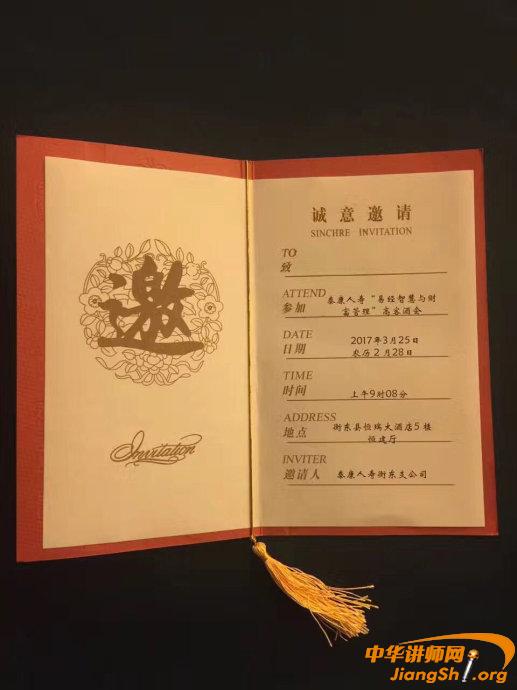 邀
Invitation
诚意邀请
SINCHRE INVITATION
TO
致
ATTEND
参加
泰康人寿“易经智慧与财
富管理”高客酒会
DATE
日期
2017年3月25日
农历2月28日
TIME
时间
上午9时08分
ADDRESS
地点
衡东县恒瑞大酒店5楼
恒建厅
INVITER
邀请人
泰康人寿衡东支公司
中华讲师网
JiangShi.org